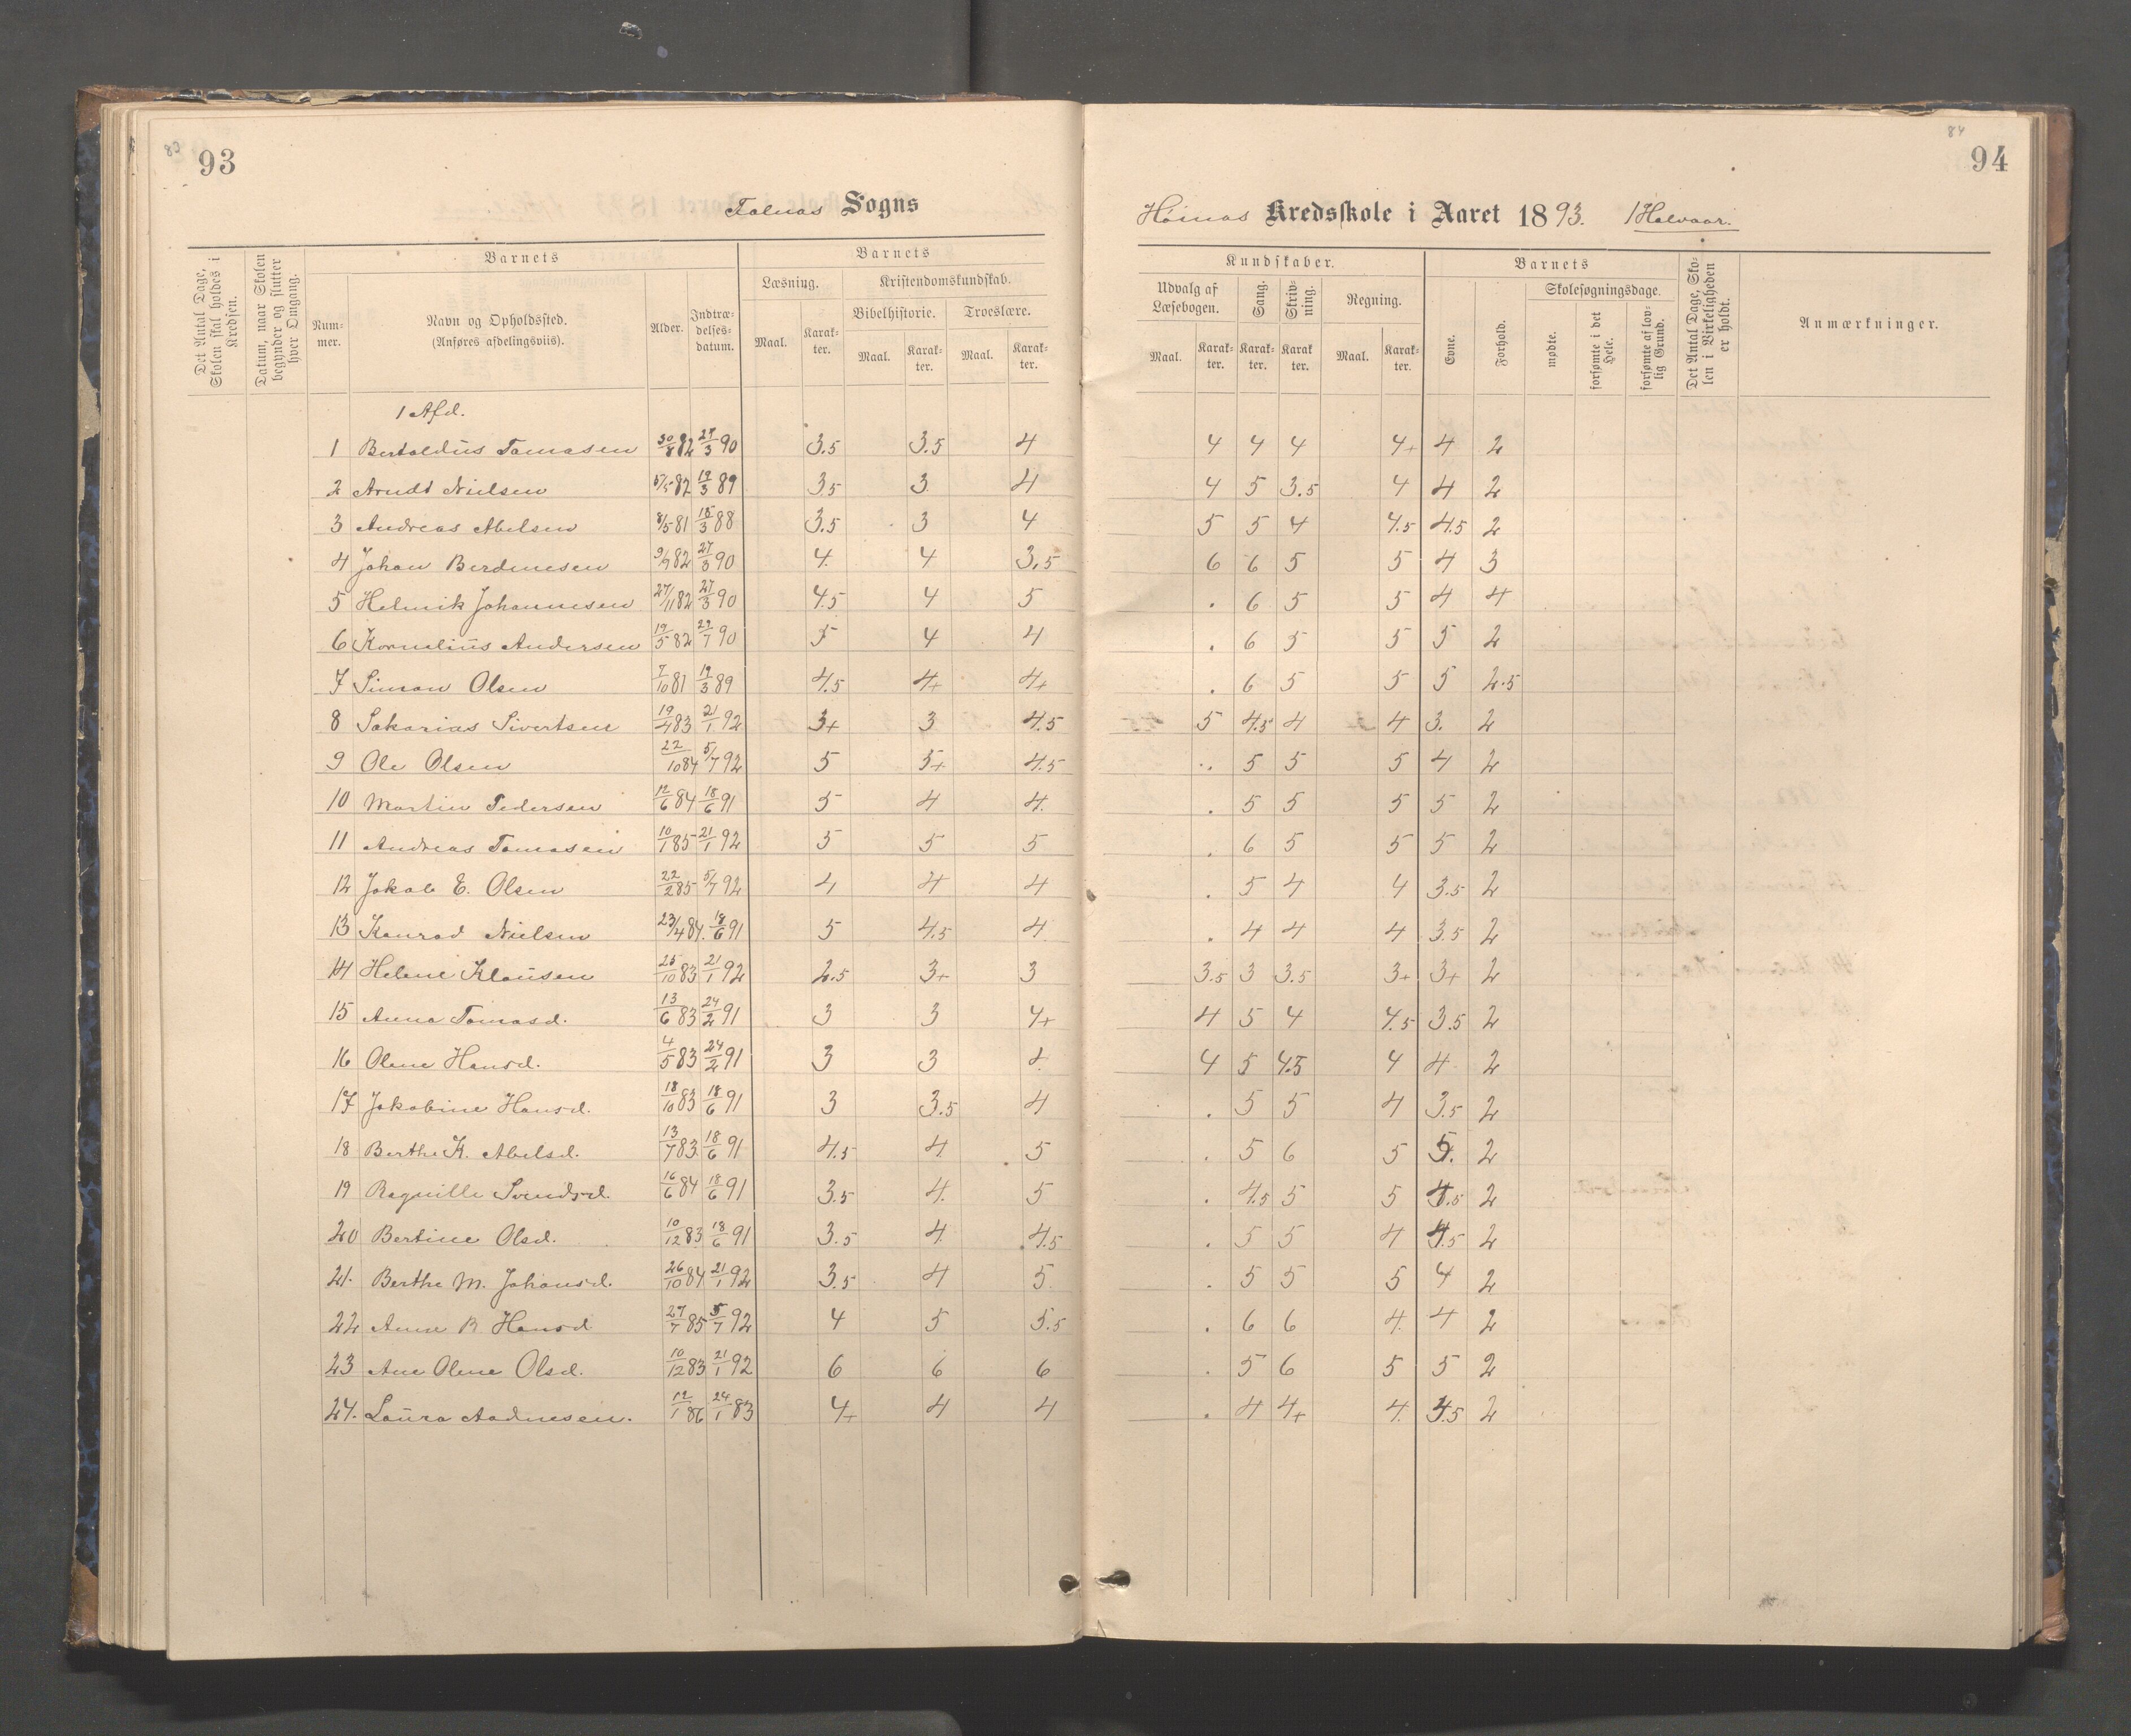 83
93
Falnæs Sogns
Det Antal Dage, Skolen skal holdes i Kredsen.
Datum, naar Skolen begynder og slutter hver Omgang.
Barnets
Barnets
Num-mer.
Navn og Opholdssted.
(Anføres afdelingsviis).
Alder.
Indtræ-delses-datum.
Læsning.
Kristendomskundskab.
Bibelhistorie.
Troeslære.
Maal. Karak-ter. Maal. Karak-ter. Maal. Karak-ter.
1 Afd.
1 Bertoldus Tomasen 30/8 82 27/3 90 3.5 3.5 4
2 Arndt Nielsen 5/5 82 19/3 89 3.5 3 4
3 Andreas Abelsen 8/5 81 15/3 88 3.5 3 4
4 Johan Berdinesen 9/7 82 27/3 90 4. 4 3.5
5 Helmik Johannesen 27/11 82 27/3 90 4.5 4 5
6 Kornelius Andersen 19/5 82 29/7 90 5 4 4
7 Simon Olsen 7/10 81 19/3 89 4.5 4+ 4+
8 Sakarias Sivertsen 19/4 83 21/1 92 3+ 3 4.5
9 Ole Olsen 22/10 84 5/7 92 5 5+ 4.5
10 Martin Pedersen 12/6 84 18/6 91 5 4 4.
11 Andreas Tomasen 10/1 85 21/1 92 5 5 5
12 Jakob E. Olsen 22/2 85 5/7 92 4 4 4
13 Konrad Nielsen 23/4 84. 18/6 91 5 4.5 4
14 Helene Klausen 25/10 83 21/1 92 2.5 3+ 3
15 Anna Tomasd. 13/6 83 24/2 91 3 3 4+
16 Olene Hansd. 4/5 83 24/2 91 3 3 4.
17 Jakobine Hansd. 18/10 83 18/6 91 3 3.5 4
18 Berthe K. Abelsd. 13/7 83 18/6 91 4.5 4. 5
19 Ragnille Svendsd. 16/6 84 18/6 91 3.5 4. 5
20 Bertine Olsd. 10/12 83 18/6 91 3.5 4. 4.5
21. Berthe M. Johansd. 26/10 84 21/1 92 3.5 4 5.
22 Anne B. Hansd 27/7 85 5/7 92 4 5 5.5
23 Ane Olene Olsd. 10/12 83 21/1 92 6 6 6
24. Laura Aadnesen. 12/1 86 24/1 83 4+ 4 4
84
94
Høinæs Kredsskole i Aaret 1893. 1 Halvaar.
Kundskaber.
Barnets
Udvalg af Læsebogen.
Sang.
Skriv-ning.
Regning.
Evne.
Forhold.
Skolesøgningsdage.
mødte.
forsømte i det Hele.
forsømte af lov-lig Grund.
Det Antal Dage, Sko-len i Virkeligheden er holdt.
Anmærkninger.
Maal. Karak-ter. Karak-ter. Karak-ter. Maal. Karak-ter.
4 4 4 4+ 4 2
4 5 3.5 4 4 2
5 5 4 4.5 4.5 2
6 6 5 5 4 3
. 6 5 5 4 4
. 6 5 5 5 2
. 6 5 5 5 2.5
5 4.5 4 4 3. 2
. 5 5 5 4 2
. 5 5 5 5 2
. 6 5 5 5 2
. 5 4 4 3.5 2
. 4 4 4 3.5 2
3.5 3 3.5 3+ 3+ 2
4 5 4 4.5 3.5 2
4 5 4.5 4 4 2
. 5 5 4 3.5 2
. 5 6 5 5. 2
. 4.5 5 5 4.5 2
. 5 5 4 4.5 2
. 5 5 5 4 2
. 6 6 4. 4 2
. 5 6 5 5 2
. 4 4+ 4. 4.5 2